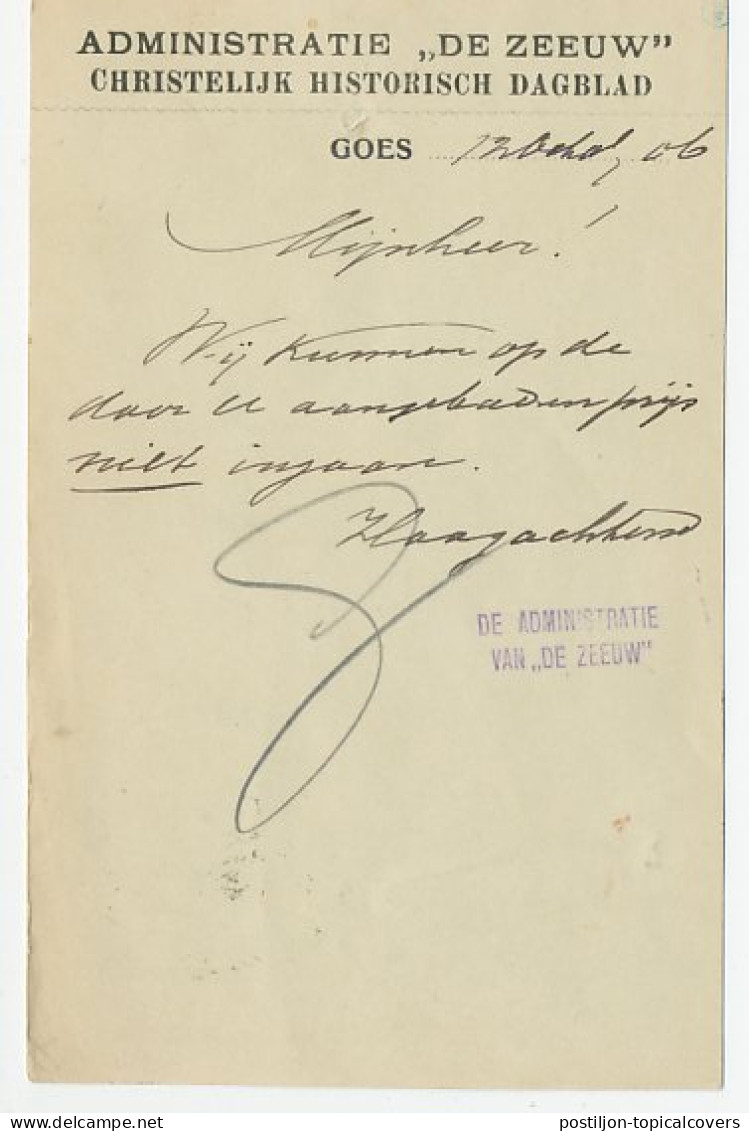 ADMINISTRATIE „DE ZEEUW”
CHRISTELIJK HISTORISCH DAGBLAD
GOES 12 06
Mijnheer!
Wij kunnen op de
door U aangeboden prijs
niet ingaan.
Hoogachtend
DE ADMINISTRATIE
VAN „DE ZEEUW”
delcampe.net
postiljon-topicalcovers